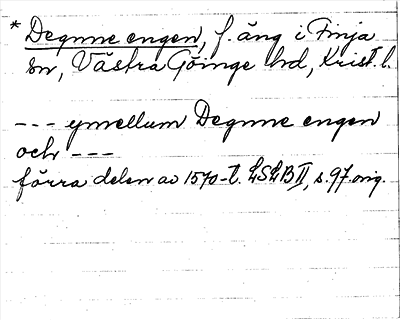 * Degnne engen, f. äng i Finja
sn, Västra Göinge hd, Krist. l.
--- ymellum Degnne engen
och ---
förra delen av 1570-t. LSLB II, s. 97 orig.